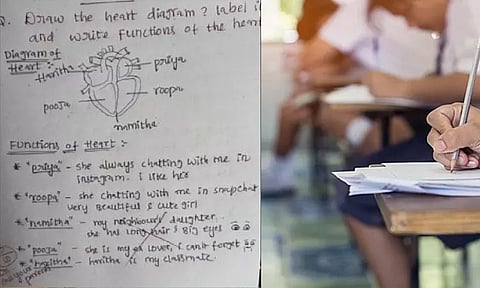 Q. Draw the heart diagram? Label i
and write functions of the heart
Diagram of
Heart :-
Haritha
priya
roopa
pooja
namitha
Functions of Heart :-
* "priya" - she always chatting with me in
instagram. I like her
* "roopa" - she chatting with me in snapchat
very beautiful & cute girl
* "namitha" - my neighbour's daughter.
she has long hair & Big eyes
* "pooja" - she is my ex lover, i can't forget
* "haritha" - haritha is my classmate.
parents